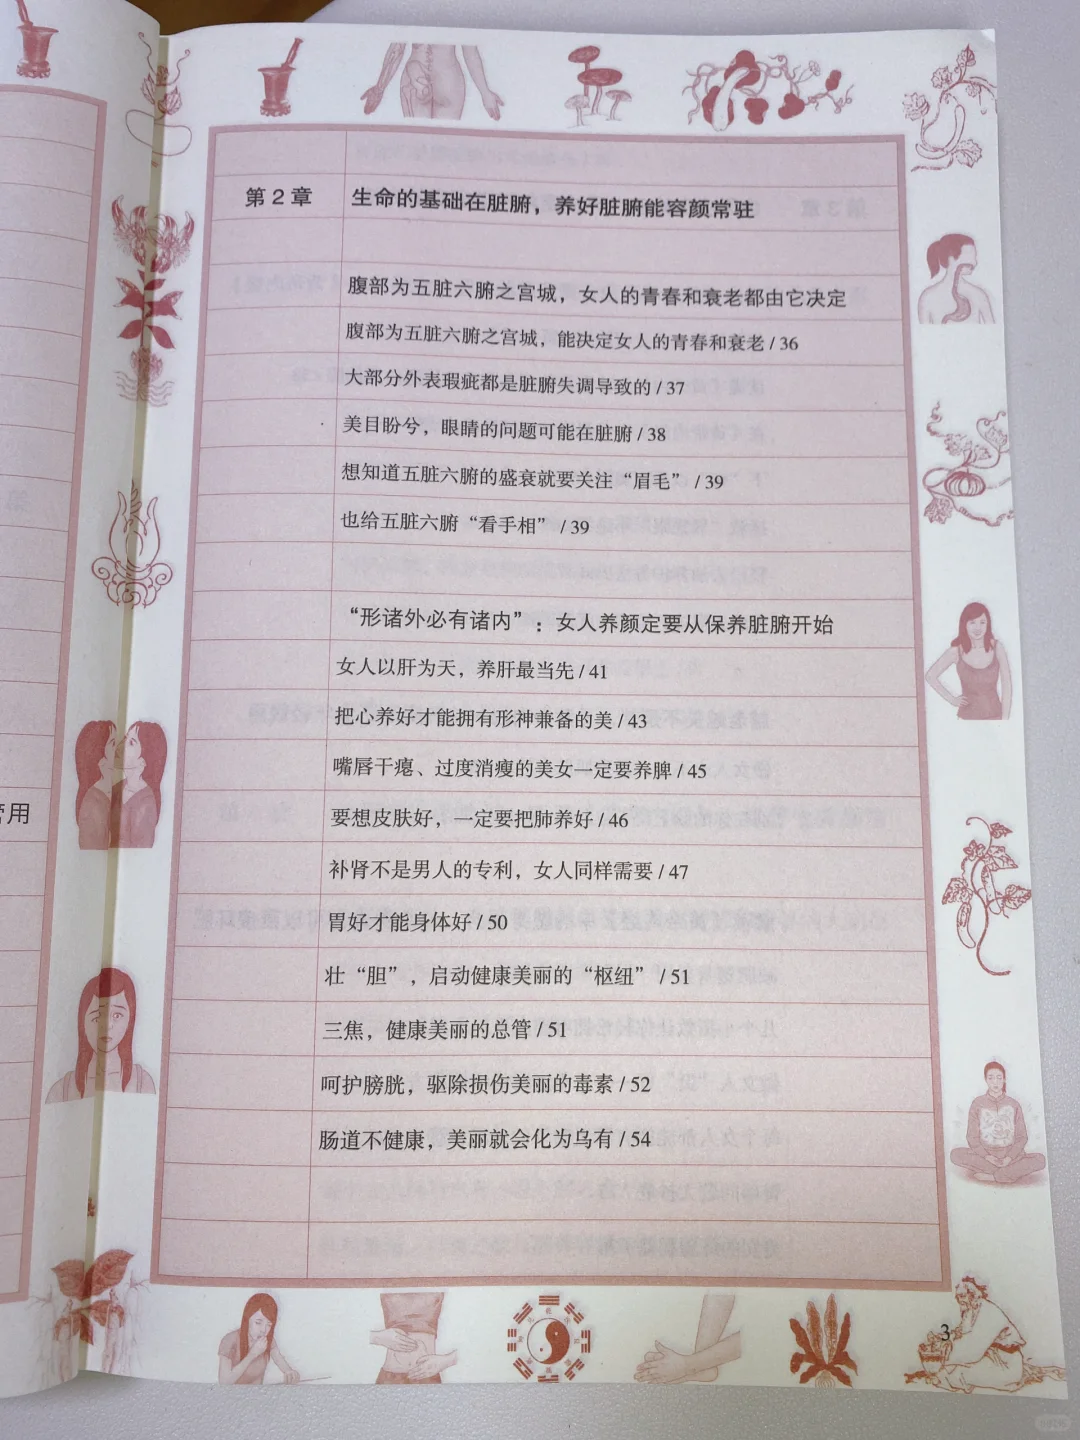 第2章 生命的基础在脏腑，养好脏腑能容颜常驻
腹部为五脏六腑之宫城，女人的青春和衰老都由它决定
腹部为五脏六腑之宫城，能决定女人的青春和衰老 / 36
大部分外表瑕疵都是脏腑失调导致的 / 37
美目盼兮，眼睛的问题可能在脏腑 / 38
想知道五脏六腑的盛衰就要关注“眉毛” / 39
也给五脏六腑“看手相” / 39
“形诸外必有诸内”：女人养颜定要从保养脏腑开始
女人以肝为天，养肝最当先 / 41
把心养好才能拥有形神兼备的美 / 43
嘴唇干瘪、过度消瘦的美女一定要养脾 / 45
要想皮肤好，一定要把肺养好 / 46
补肾不是男人的专利，女人同样需要 / 47
胃好才能身体好 / 50
壮“胆”，启动健康美丽的“枢纽” / 51
三焦，健康美丽的总管 / 51
呵护膀胱，驱除损伤美丽的毒素 / 52
肠道不健康，美丽就会化为乌有 / 54
3
用